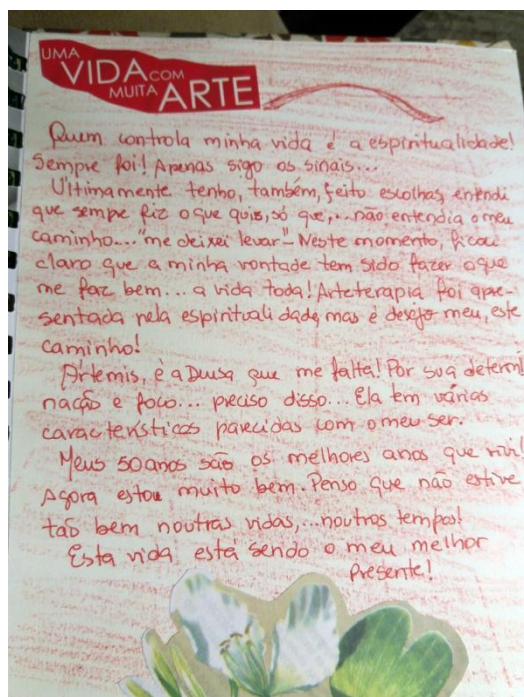 UMA
VIDA COM
MUITA ARTE
Quem controla minha vida é a espiritualidade!
Sempre foi! Apenas sigo os sinais...
Ultimamente tenho, também, feito escolhas, entendi
que sempre fiz o que quis, só que,... não entendia o meu
caminho... "me deixei levar" - Neste momento, ficou
claro que a minha vontade tem sido fazer o que
me faz bem... a vida toda! Arteterapia foi apre-
sentada pela espiritualidade, mas é desejo meu, este
caminho!
Ártemis, é a Deusa que me falta! Por sua determi
nação e foco... preciso disso... Ela tem várias
características parecidas com o meu ser.
Meus 50 anos são os melhores anos que vivi!
Agora estou muito bem. Penso que não estive
tão bem noutras vidas,... noutros tempos!
Esta vida está sendo o meu melhor
Presente!